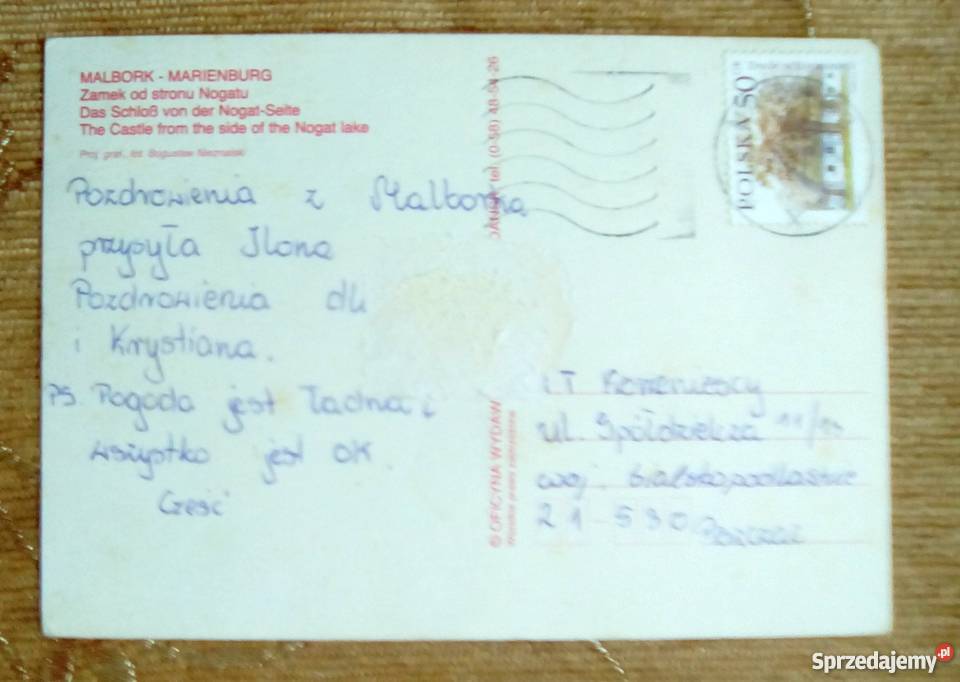 MALBORK - MARIENBURG
Zamek od stronu Nogatu
Das Schloß von der Nogat-Seite
The Castle from the side of the Nogat lake
Proj. graf., fot. Bogusław
Pozdrowienia z Malborka
przysyła Ilona
Pozdrowienia dla
i Krystiana.
PS. Pogoda jest ładna i
wszystko jest OK.
Cześć
© OFICYNA WYDAW
tel. (0-58) 48-54-26
POLSKA 50
ul. Spółdzielcza 11/
woj. bialskopodlaskie
21-530
Sprzedajemy.pl